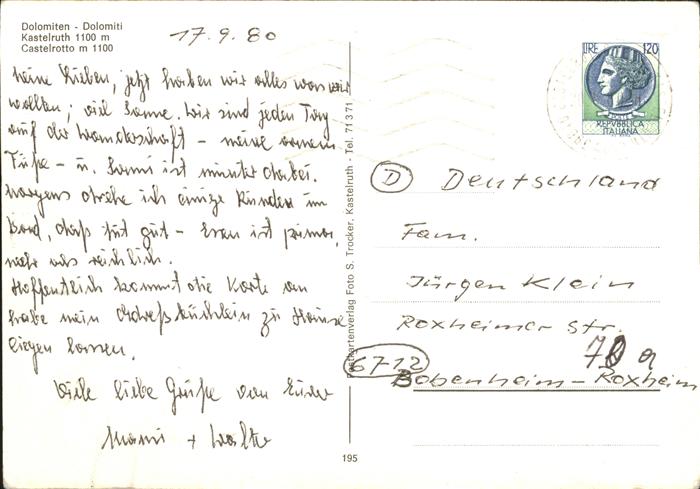 Dolomiten - Dolomiti
Kastelruth 1100 m
Castelrotto m 1100
17.9.80
Meine Lieben, jetzt haben wir alles was wir
wollen; viel Sonne. Wir sind jeden Tag
auf der Wanderschaft - meine armen
Füße - u. Sami ist munter dabei.
Morgens drehe ich einige Runden im
Bad, das tut gut - Essen ist prima,
mehr als reichlich.
Hoffentlich kommt die Karte an
habe mein Adreßbüchlein zu Hause
liegen lassen.
Viele liebe Grüße von Eurer
Mami + Walter
Postkartenverlag Foto S. Trocker, Kastelruth - Tel. 71371
195
LIRE 120
REPVBBLICA
ITALIANA
D Deutschland
Fam.
Jürgen Klein
Roxheimer Str.
70 a
6712
Bobenheim-Roxheim